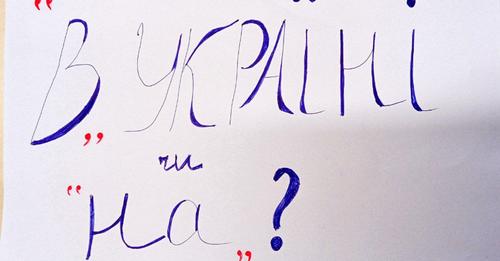 "В" УКРАЇНІ
чи
"на"?